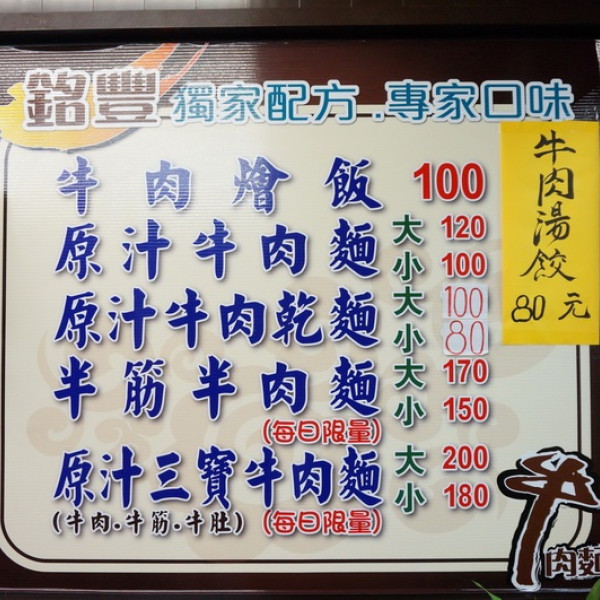 銘豐 獨家配方.專家口味
牛肉燴飯 100
原汁牛肉麵 大 120
小 100
原汁牛肉乾麵 大 100
小 80
半筋半肉麵 大 170
小 150
(每日限量)
原汁三寶牛肉麵 大 200
小 180
(牛肉.牛筋.牛肚) (每日限量)
牛肉湯餃
80元
牛
肉麵